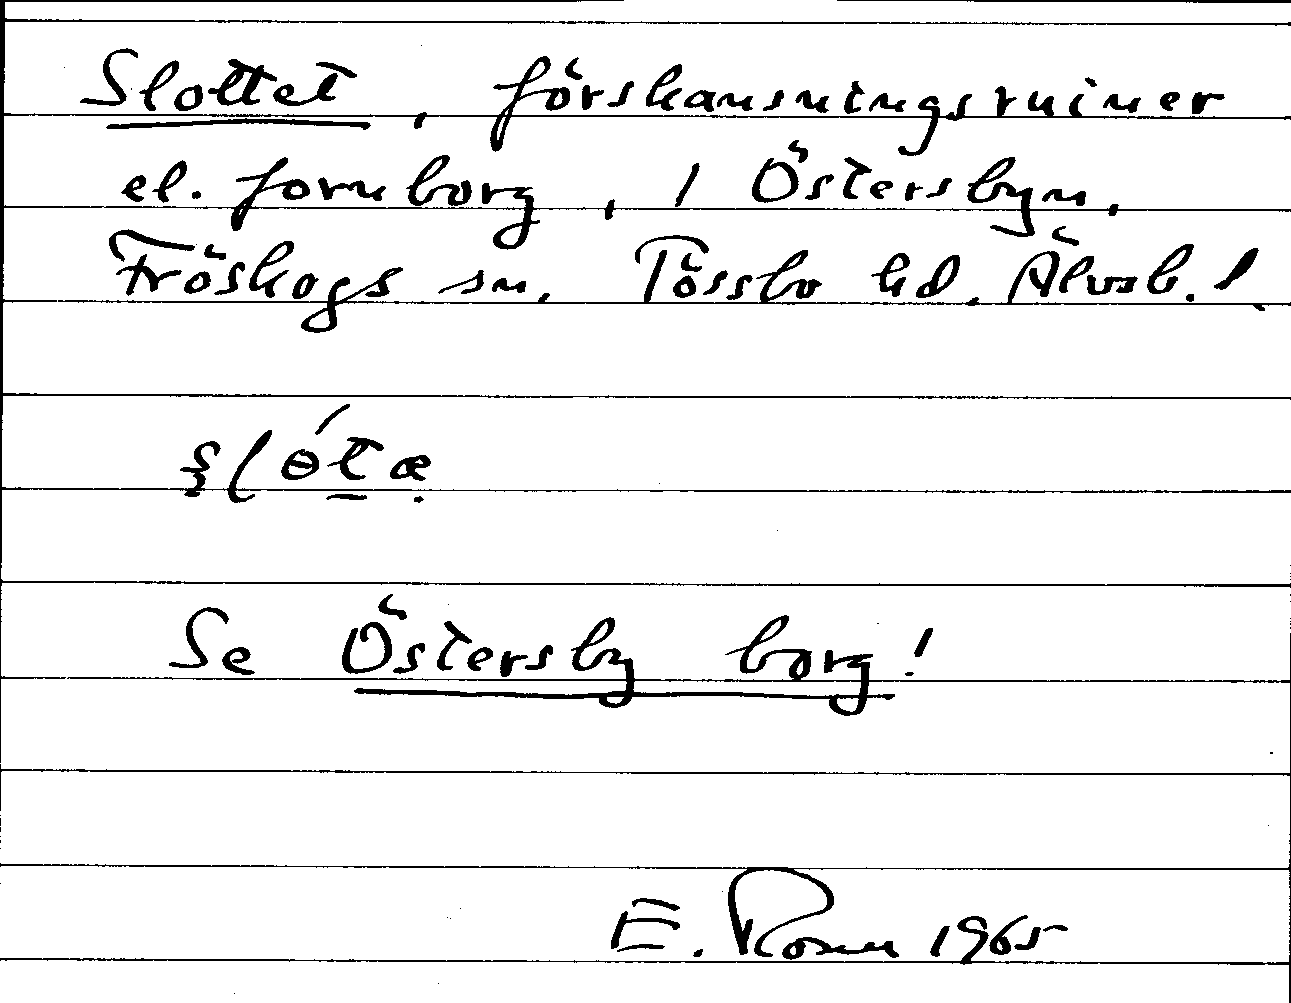 Slottet, förskansningsruiner
el. fornborg, i Östersbyn,
Fröskogs sn, Tössbo hd. Älvsb. l.
Se Östersby borg!
E. 1965